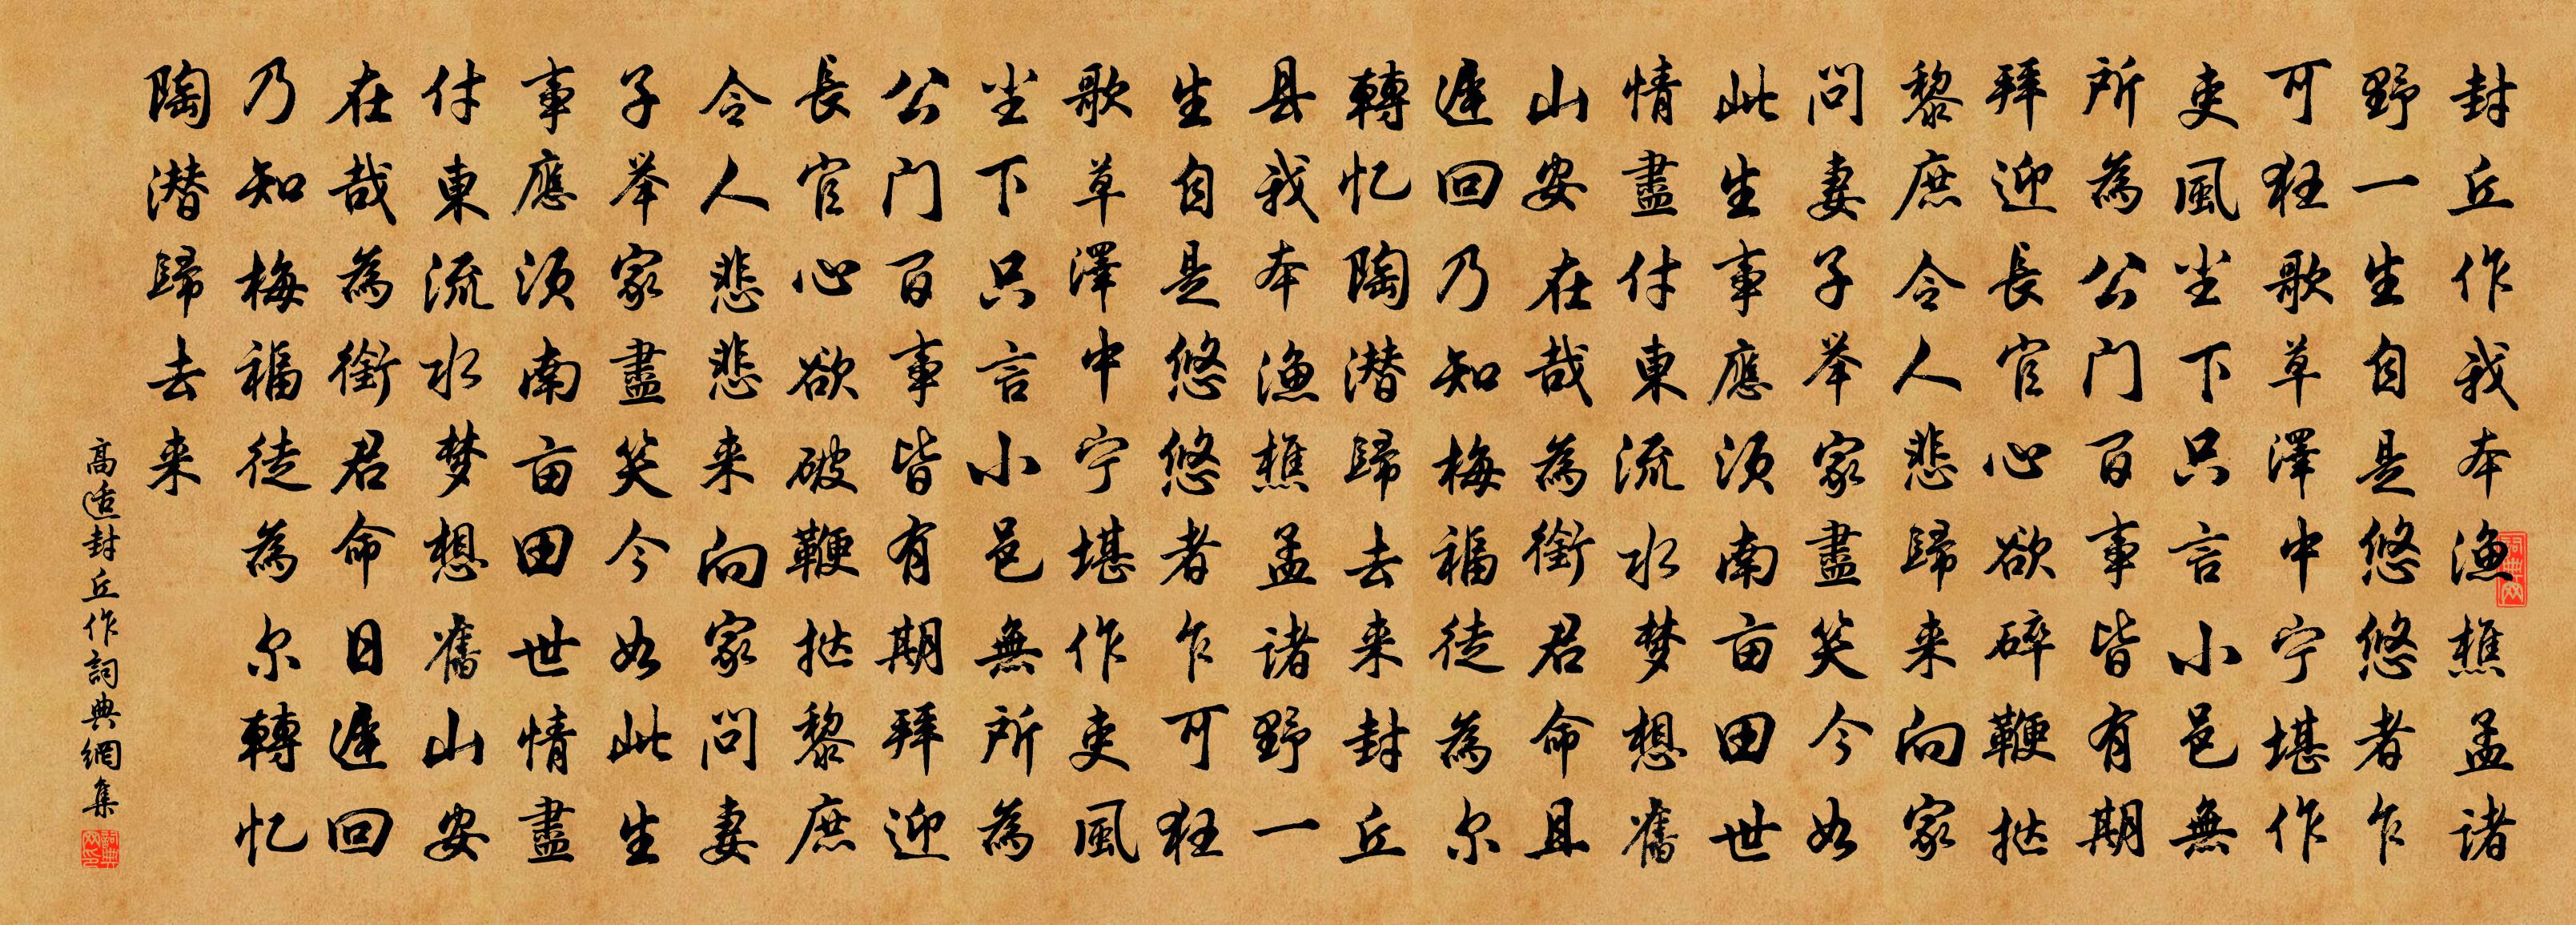 封丘作我本渔樵孟诸
野一生自是悠悠者乍
可狂歌草澤中宁堪作
吏風尘下只言小邑無
所為公门百事皆有期
拜迎長官心欲碎鞭挞
黎庶令人悲歸来向家
問妻子举家盡笑今如
此生事應须南亩田世
情盡付東流水梦想舊
山安在哉為銜君命且
遲回乃知梅福徒為尔
轉忆陶潜歸去来封丘
县我本渔樵孟诸野一
生自是悠悠者乍可狂
歌草澤中宁堪作吏風
尘下只言小邑無所為
公门百事皆有期拜迎
長官心欲破鞭挞黎庶
令人悲悲来向家問妻
子举家盡笑今如此生
事應须南亩田世情盡
付東流水梦想舊山安
在哉為銜君命日遲回
乃知梅福徒為尔轉忆
陶潜歸去来
高适封丘作詞典網集